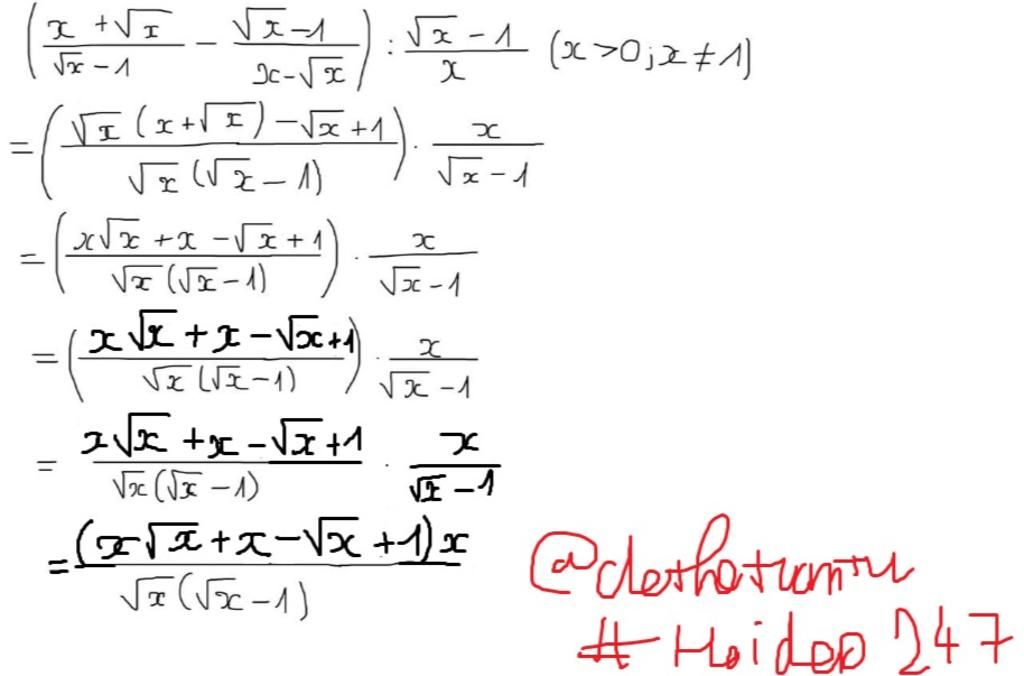 (\frac{x+\sqrt{x}}{\sqrt{x}-1} - \frac{\sqrt{x}-1}{x-\sqrt{x}}) : \frac{\sqrt{x}-1}{x} (x>0; x≠1)
= (\frac{\sqrt{x}(x+\sqrt{x})-\sqrt{x}+1}{\sqrt{x}(\sqrt{x}-1)}) . \frac{x}{\sqrt{x}-1}
= (\frac{x\sqrt{x}+x-\sqrt{x}+1}{\sqrt{x}(\sqrt{x}-1)}) . \frac{x}{\sqrt{x}-1}
= (\frac{x\sqrt{x}+x-\sqrt{x}+1}{\sqrt{x}(\sqrt{x}-1)}) . \frac{x}{\sqrt{x}-1}
= \frac{x\sqrt{x}+x-\sqrt{x}+1}{\sqrt{x}(\sqrt{x}-1)} . \frac{x}{\sqrt{x}-1}
= \frac{(x\sqrt{x}+x-\sqrt{x}+1)x}{\sqrt{x}(\sqrt{x}-1)}
# Hoidap 247